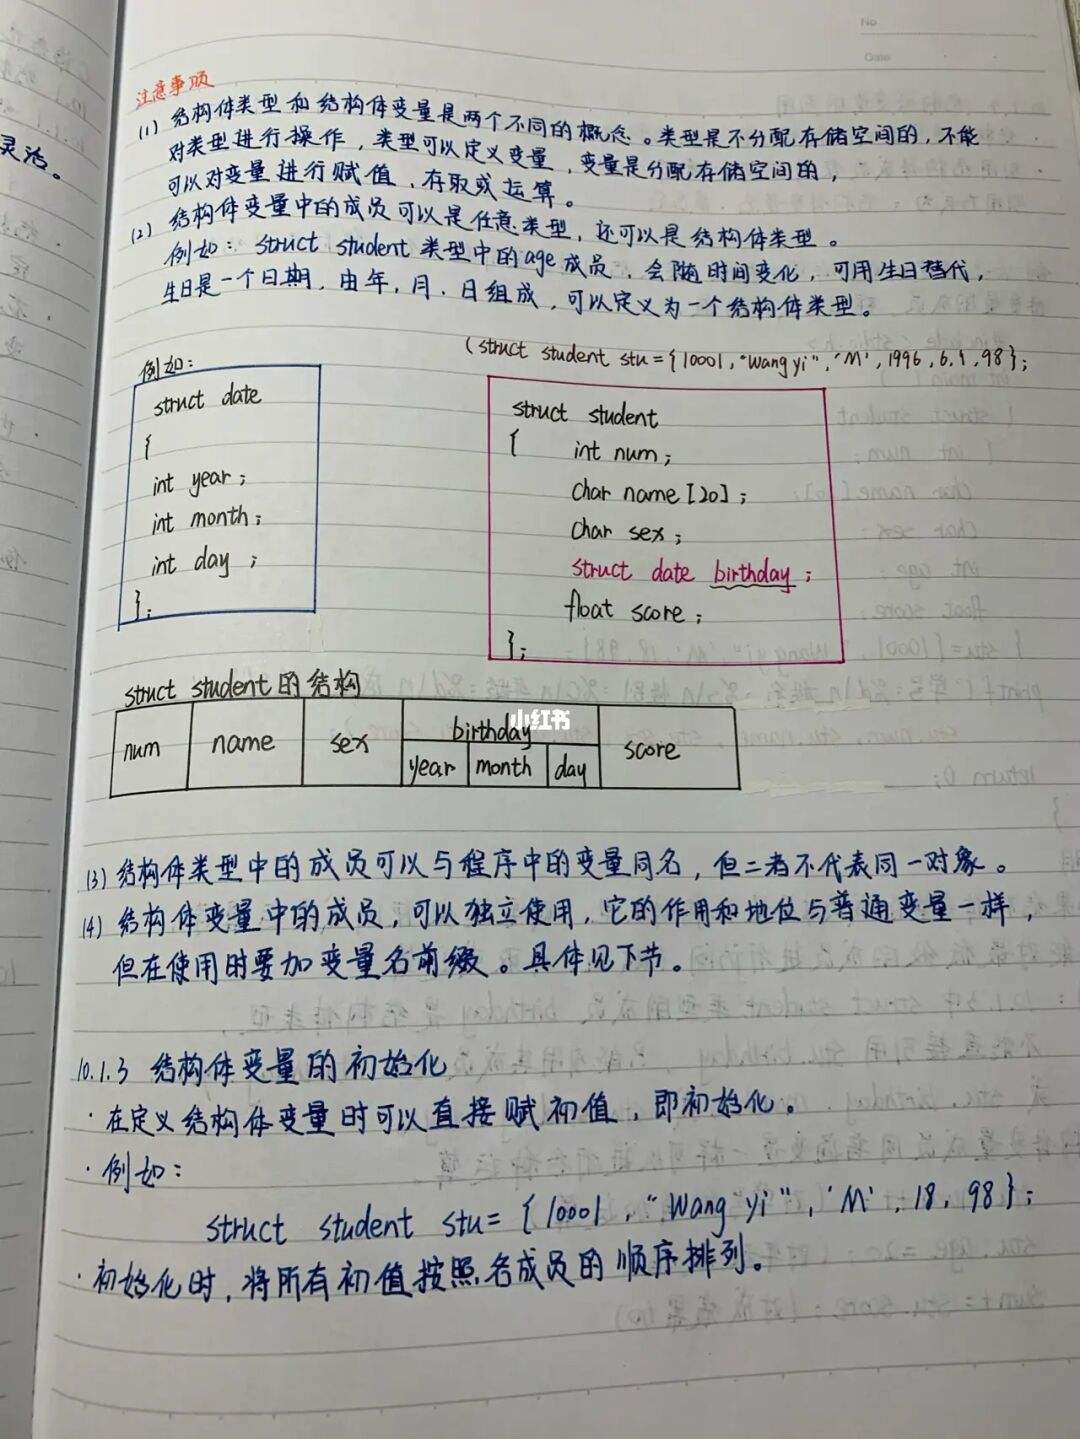 No
Date
灵活。
注意事项
(1) 结构体类型和结构体变量是两个不同的概念。类型是不分配存储空间的,不能
对类型进行操作,类型可以定义变量,变量是分配存储空间的,
可以对变量进行赋值、存取或运算。
(2) 结构体变量中的成员可以是任意类型,还可以是结构体类型。
例如:struct student 类型中的age成员,会随时间变化,可用生日替代,
生日是一个日期,由年,月、日组成,可以定义为一个结构体类型。
(struct student stu={10001,"Wang yi",'M',1996,6,1,98};
例如:
struct date
{
int year;
int month;
int day ;
};
struct student
{ int num;
char name[20];
char sex;
struct date birthday;
float score;
};
struct student的结构
num name sex birthday score
year month day
小红书
(3) 结构体类型中的成员可以与程序中的变量同名,但二者不代表同一对象。
(4) 结构体变量中的成员,可以独立使用,它的作用和地位与普通变量一样,
但在使用时要加变量名前缀。具体见下节。
10.1.3 结构体变量的初始化
·在定义结构体变量时可以直接赋初值,即初始化。
·例如:
struct student stu={10001,"Wang yi",'M',18,98};
·初始化时,将所有初值按照各成员的顺序排列。